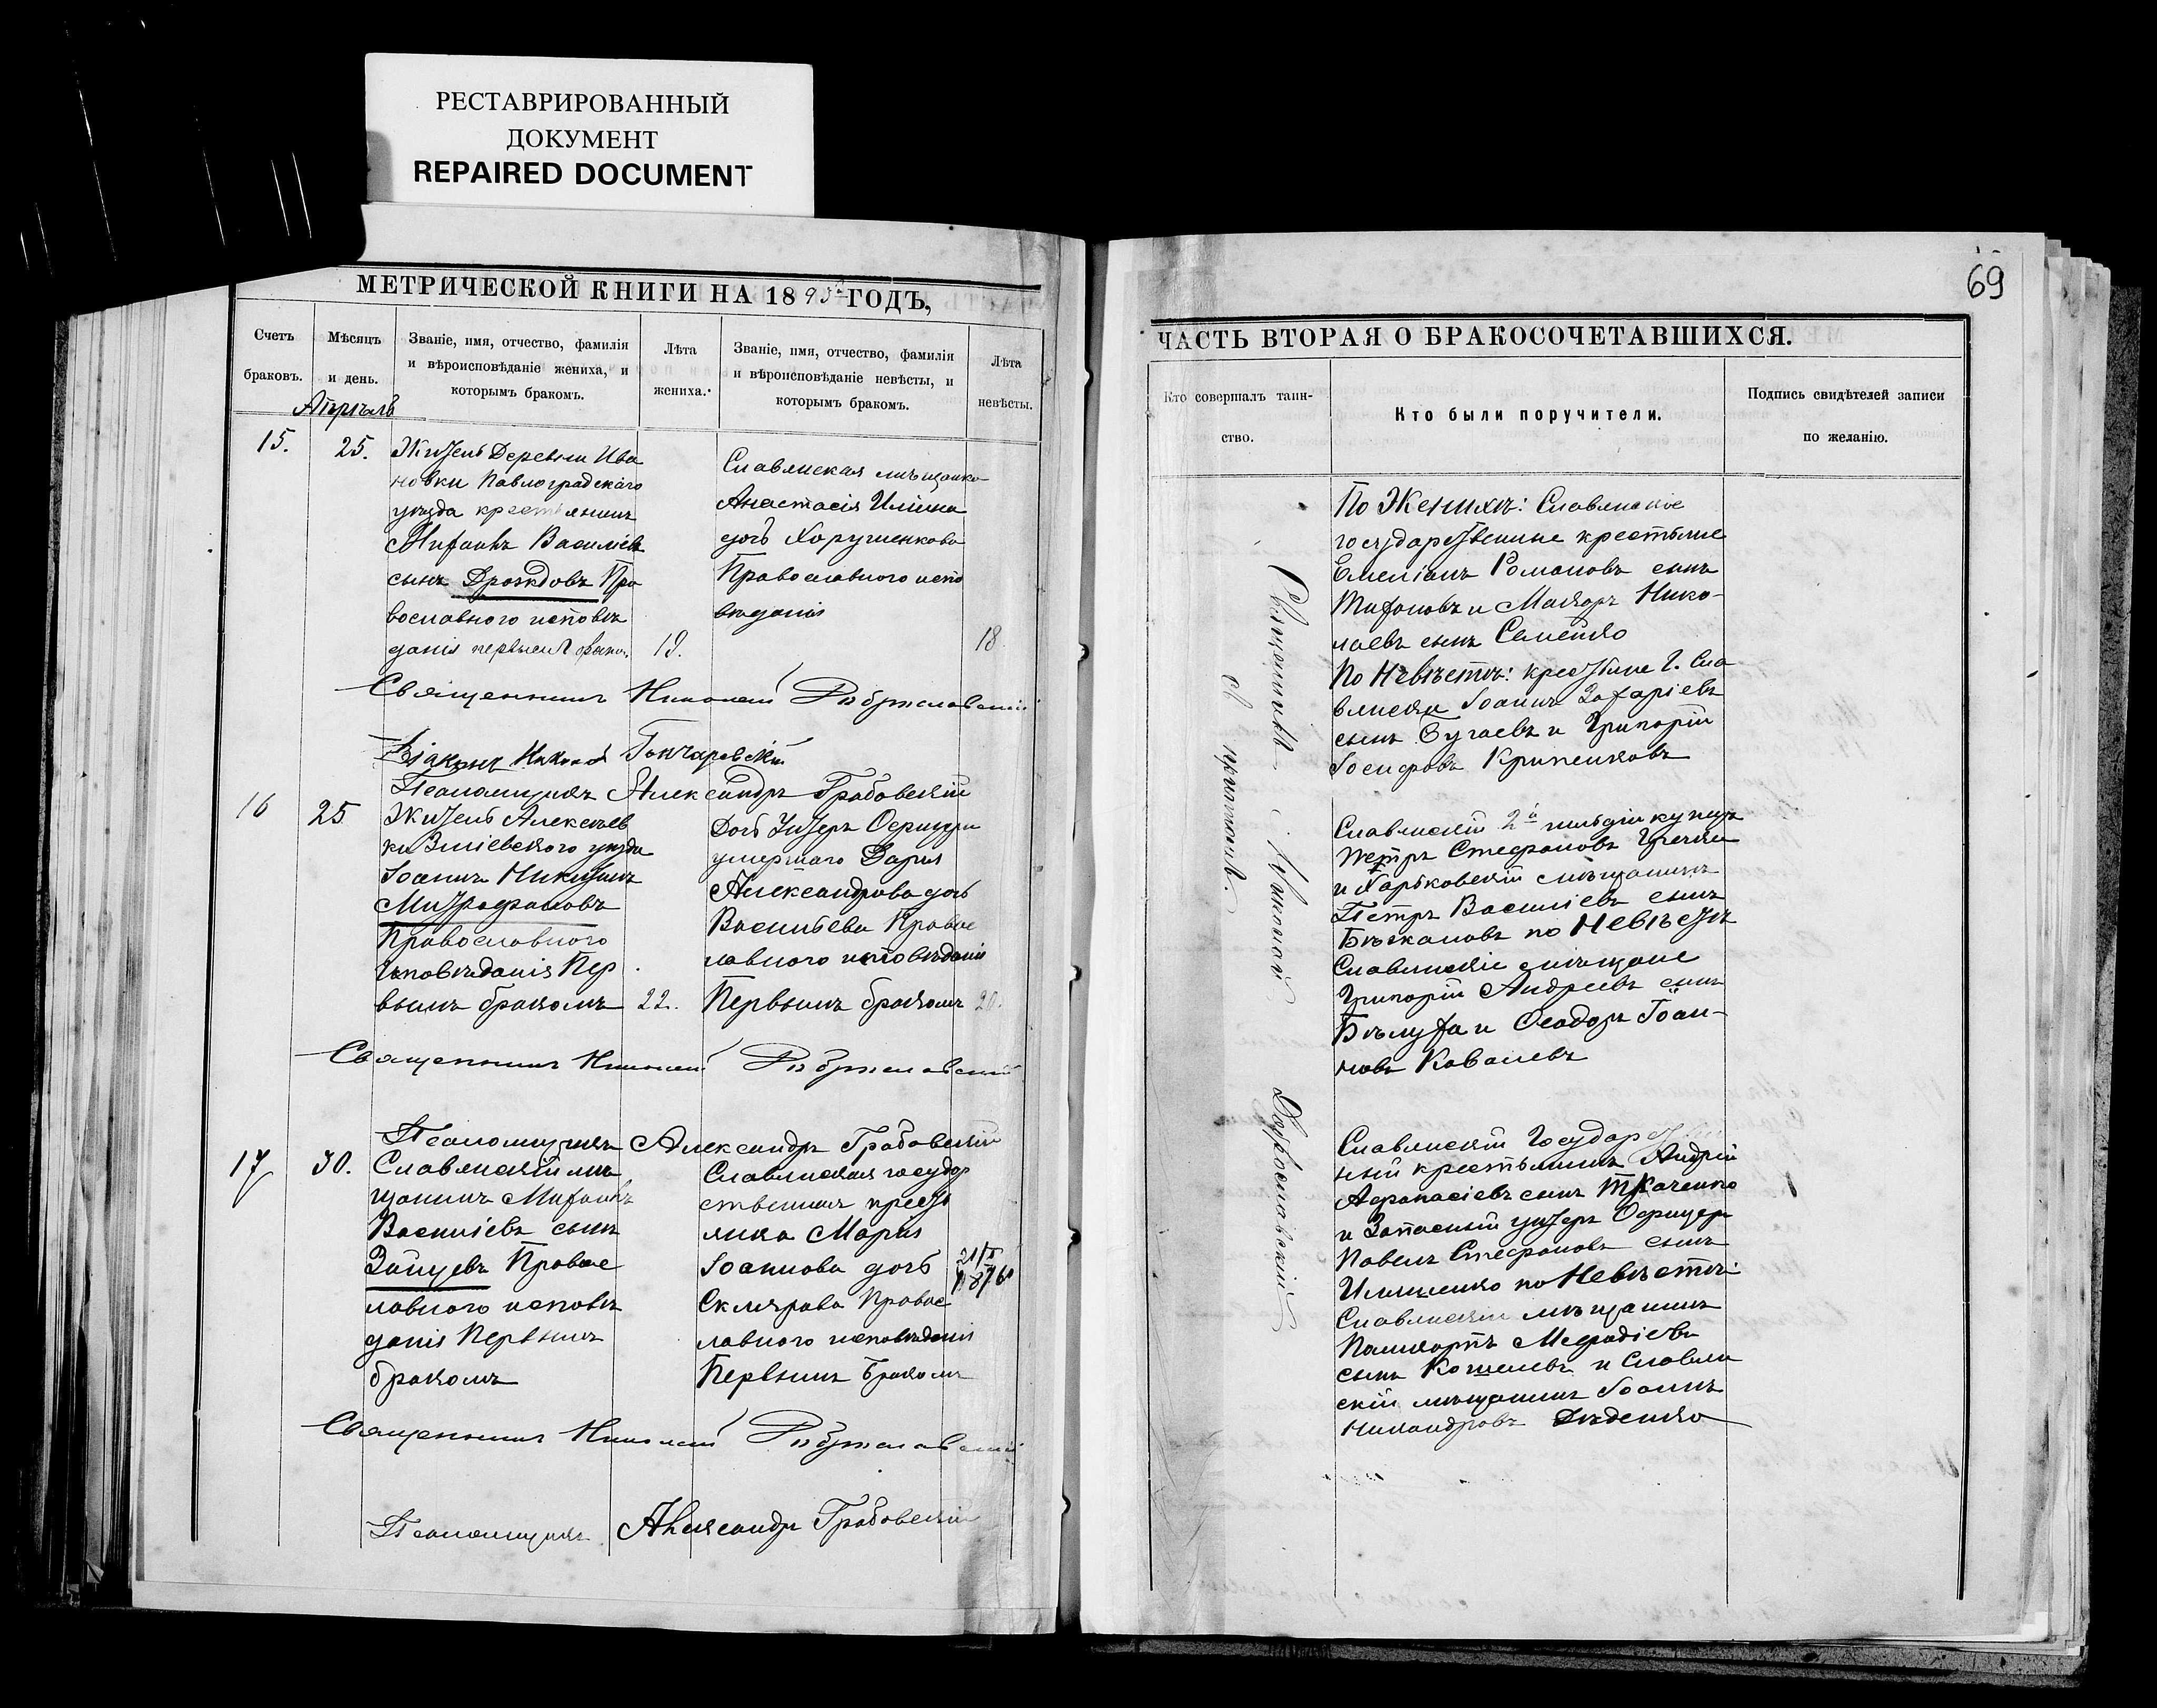 РЕСТАВРИРОВАННЫЙ
ДОКУМЕНТ
REPAIRED DOCUMENT
МЕТРИЧЕСКОЙ КНИГИ НА 1895й ГОДЪ,
Счетъ браковъ.
Мѣсяцъ и день.
Званіе, имя, отчество, фамилія
и вѣроисповѣданіе жениха, и
которымъ бракомъ.
Лѣта жениха.
Званіе, имя, отчество, фамилія
и вѣроисповѣданіе невѣсты, и
которымъ бракомъ.
Лѣта невѣсты.
Апрѣль
15.
25.
Житель Деревни Ива
новки Павлоградскаго
уѣзда крестьянинъ
Тихонъ Василіевъ
сынъ Дроздовъ Пра
вославного исповѣ
данія первымъ браком.
19.
Славянская мѣщанка
Анастасія Илііна
дочь Хорушенкова
Православного испо
вѣданія
18
Священникъ Николай
Діаконъ Николай Гончаревскій
Псаломщикъ Александръ Грабовскій
16
25
Житель Алексѣев
ки Зміевского уѣзда
Іоаннъ Никитинъ
Митрофановъ
Православного
Исповѣданія Пер
вымъ бракомъ
22.
Дочь Унтеръ Офицера
умершаго Дарія
Александрова дочь
Васильева Правос
лавного исповѣданія
Первымъ бракомъ
20.
Священникъ Николай
Псаломщикъ Александръ Грабовскій
17
30.
Славянскій мѣ
щанинъ Тихонъ
Василіевъ сынъ
Зайцевъ Правос
лавного исповѣ
данія Первымъ
бракомъ
Славянская госудор
ственная крест
янка Марія
Іоаннова дочь
Склярова Правос
лавного исповѣданія
Первымъ Бракомъ
Священникъ Николай
Псаломщикъ Александръ Грабовскій
69
ЧАСТЬ ВТОРАЯ О БРАКОСОЧЕТАВШИХСЯ.
Кто совершалъ таин-
ство.
Кто были поручители.
Подпись свидѣтелей записи
по желанію.
Священникъ Николай
съ причтомъ.
По Женихѣ: Славянскіе
государственные крестьяне
Емеліанъ Романовъ сынъ
Тихоновъ и Макаръ Нико-
лаевъ сынъ Семейко
По Невѣстѣ: крестьяне Г. Сла
вянска Іоаннъ Захаріевъ
сынъ Бугаевъ и Григорій
Іосифовъ
Славянскій 2й гильдіи купецъ
Петръ Стефановъ
и Харьковскій мѣщанинъ
Петръ Василіевъ сынъ
по Невѣстѣ
Славянскіе мѣщане
Григорій Андреевъ сынъ
Бѣлуха и Феодоръ Іоан-
новъ Ковалевъ
Славянскій Государствен
ный крестьянинъ Андрей
Афанасіевъ сынъ Ткаченко
и Запасный унтеръ Офицеръ
Павелъ Стефановъ сынъ
по Невѣстѣ:
Славянскій мѣщанинъ
Мефодіевъ
сынъ Кошелевъ и Славян
скій мѣщанинъ Іоаннъ
Никандровъ Дѣденко